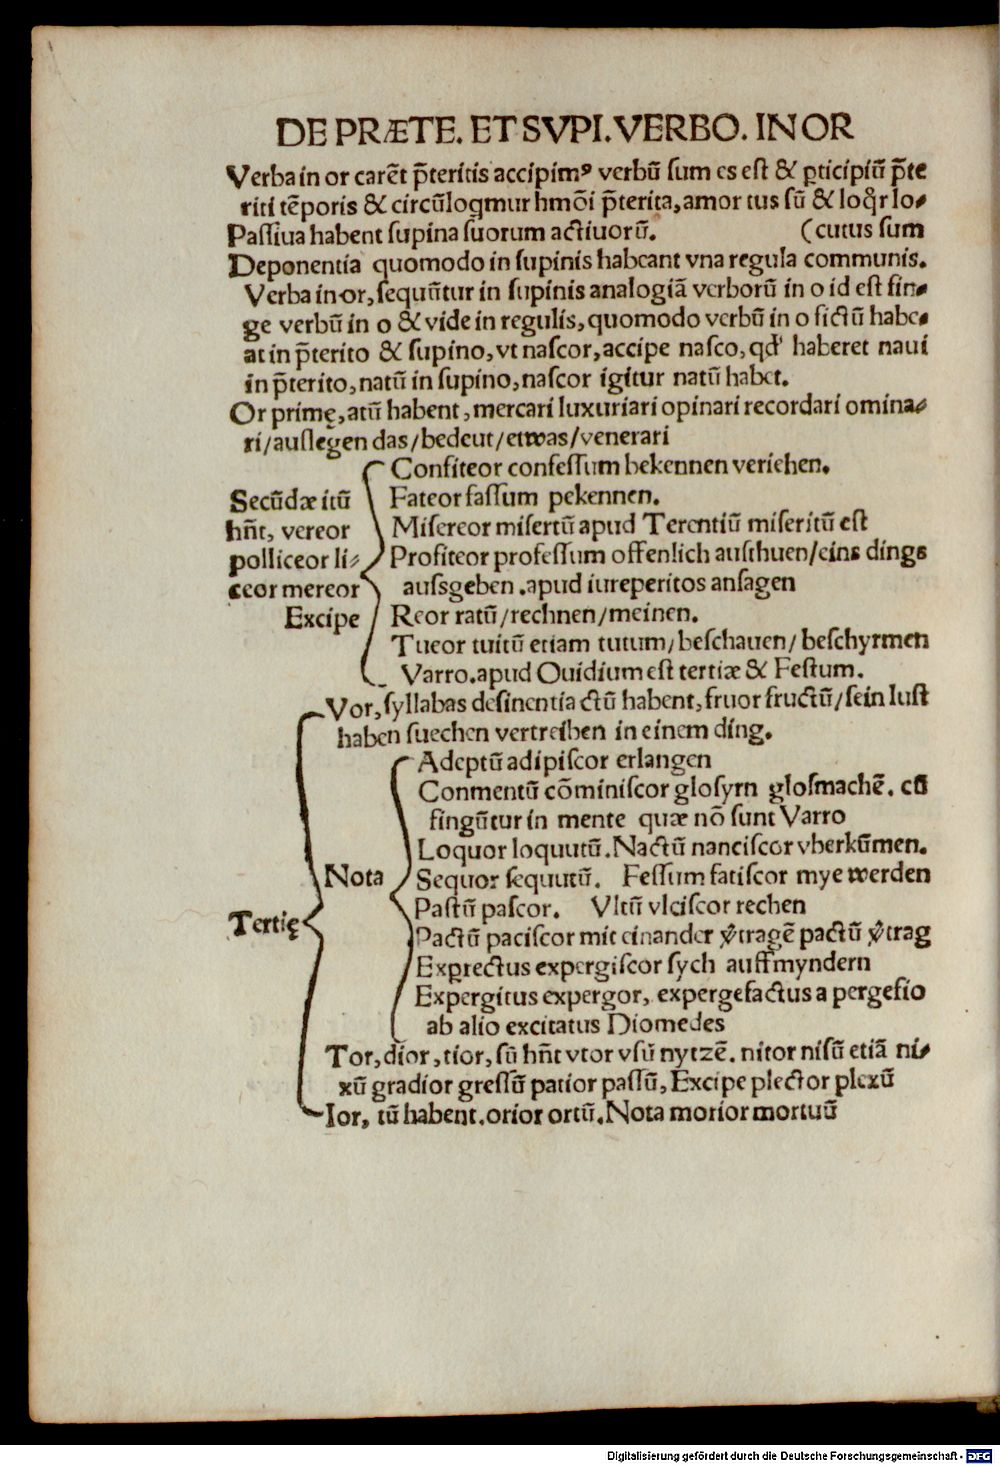 DE PRÆTE. ET SVPI. VERBO. IN OR
Verba in or carēt p̄teritis accipimꝰ verbū ſum es eſt & ꝑticipiū p̄te
riti tēporis & circūloqmur hmōi p̄terita, amor tus ſū & loqͦr lo⸗
Paſſiua habent ſupina ſuorum actiuorū. (cutus ſum
Deponentia quomodo in ſupinis habeant vna regula communis.
Verba in or, ſequūtur in ſupinis analogiā verborū in o id eſt fin⸗
ge verbū in o & vide in regulis, quomodo verbū in o fictū habe⸗
at in p̄terito & ſupino, vt naſcor, accipe naſco, qd' haberet naui
in p̄terito, natū in ſupino, naſcor igitur natū habet.
Or primę, atū habent, mercari luxuriari opinari recordari omina⸗
ri/auſlegen das/bedeut/etwas/venerari
Secūdæ itū
hn̄t, vereor
polliceor li⸗
ceor mereor
Excipe
Confiteor confeſſum bekennen veriehen.
Fateor faſſum pekennen.
Miſereor miſertū apud Terentiū miſeritū eſt
Profiteor profeſſum offenlich authuen/eins dings
auſsgeben .apud iureperitos anſagen
Reor ratū/rechnen/meinen.
Tueor tuitū etiam tutum/beſchauen/beſchyrmen
Varro. apud Ouidium eſt tertiæ & Feſtum.
Tertię
Vor, ſyllabas deſinentia ctū habent, fruor fructū/ſein luſt
haben ſuechen vertreiben in einem ding.
Nota
Adeptū adipiſcor erlangen
Conmentū cōminiſcor gloſyrn gloſmachē. cū
fingūtur in mente quæ nō ſunt Varro
Loquor loquutū. Nactū nanciſcor vberkūmen.
Sequor ſequutū. Feſſum fatiſcor mye werden
Paſtū paſcor. Vltū vlciſcor rechen
Pactū paciſcor mit einander v̓tragē pactū v̓trag
Exꝑrectus expergiſcor ſych auffmyndern
Expergitus expergor, expergefactus a pergefio
ab alio excitatus Diomedes
Tor, dior, tior, ſū hn̄t vtor vſū nytzē. nitor niſū etiā ni⸗
xū gradior greſſū patior paſſū, Excipe plector plexū
Ior, tū habent. orior ortū. Nota morior mortuū
Digitalisierung gefördert durch die Deutsche Forschungsgemeinschaft - DFG